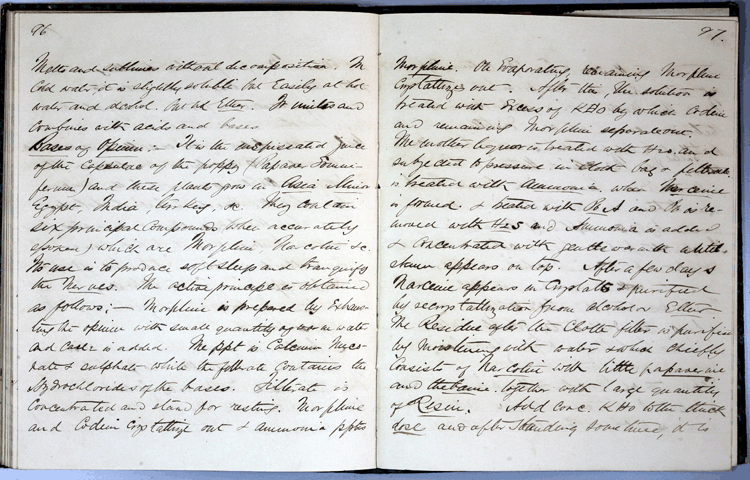 96
Melts and sublimes without decomposition. In
Cold water it is slightly soluble but Easily at hot
water and alcohol. but not Ether. It unites and
Combines with acids and bases
Bases of Opium:- It is the inspissated juice
of the Capsules of the poppy (Papaver Somni-
ferum) and these plants grow in Asia Minor
Egypt, India, Turkey, &c. They contain
six principal Compounds when accurately
which are Morphin Narcotin &c.
Its use is to produce soft sleep and tranquify
the Nerves. The active principle is obtained
as follows:- Morphine is prepared by Exhaus-
ting the opium with small quantity of warm water
and CaCl2 is added. The ppt is Calcium Meco-
nate & sulphate while the filtrate Contains the
Hydrochlorides of the bases. Filtrate is
Concentrated and stand for resting. Morphine
and Codein Crystallize out & ammonia ppts
97.
Morphine. On Evaporating, remaining Morphine
Crystallizes out. After this the solution is
treated with Excess of KHO by which Codein
and remaining Morphine separate out.
The mother liquor is treated with H2O and
subjected to pressure in Cloth bag & filtrate
is treated with Ammonia, when Narceine
is formed. & treated with Pb A and Pb is re-
moved with H2S and Ammonia is added
& Concentrated with gentle warmth until
appears on top. After a few days
Narceine appears in Crystals & purified
by recrystallization from alcohol or Ether.
The Residue after the Cloth filter is purified
by Moistening with water & which chiefly
Consists of Narcotin with little papaverine
and thebaine together with large quantity
of Resin. Add conc. KHO to the thick
and after Standing sometime, it is